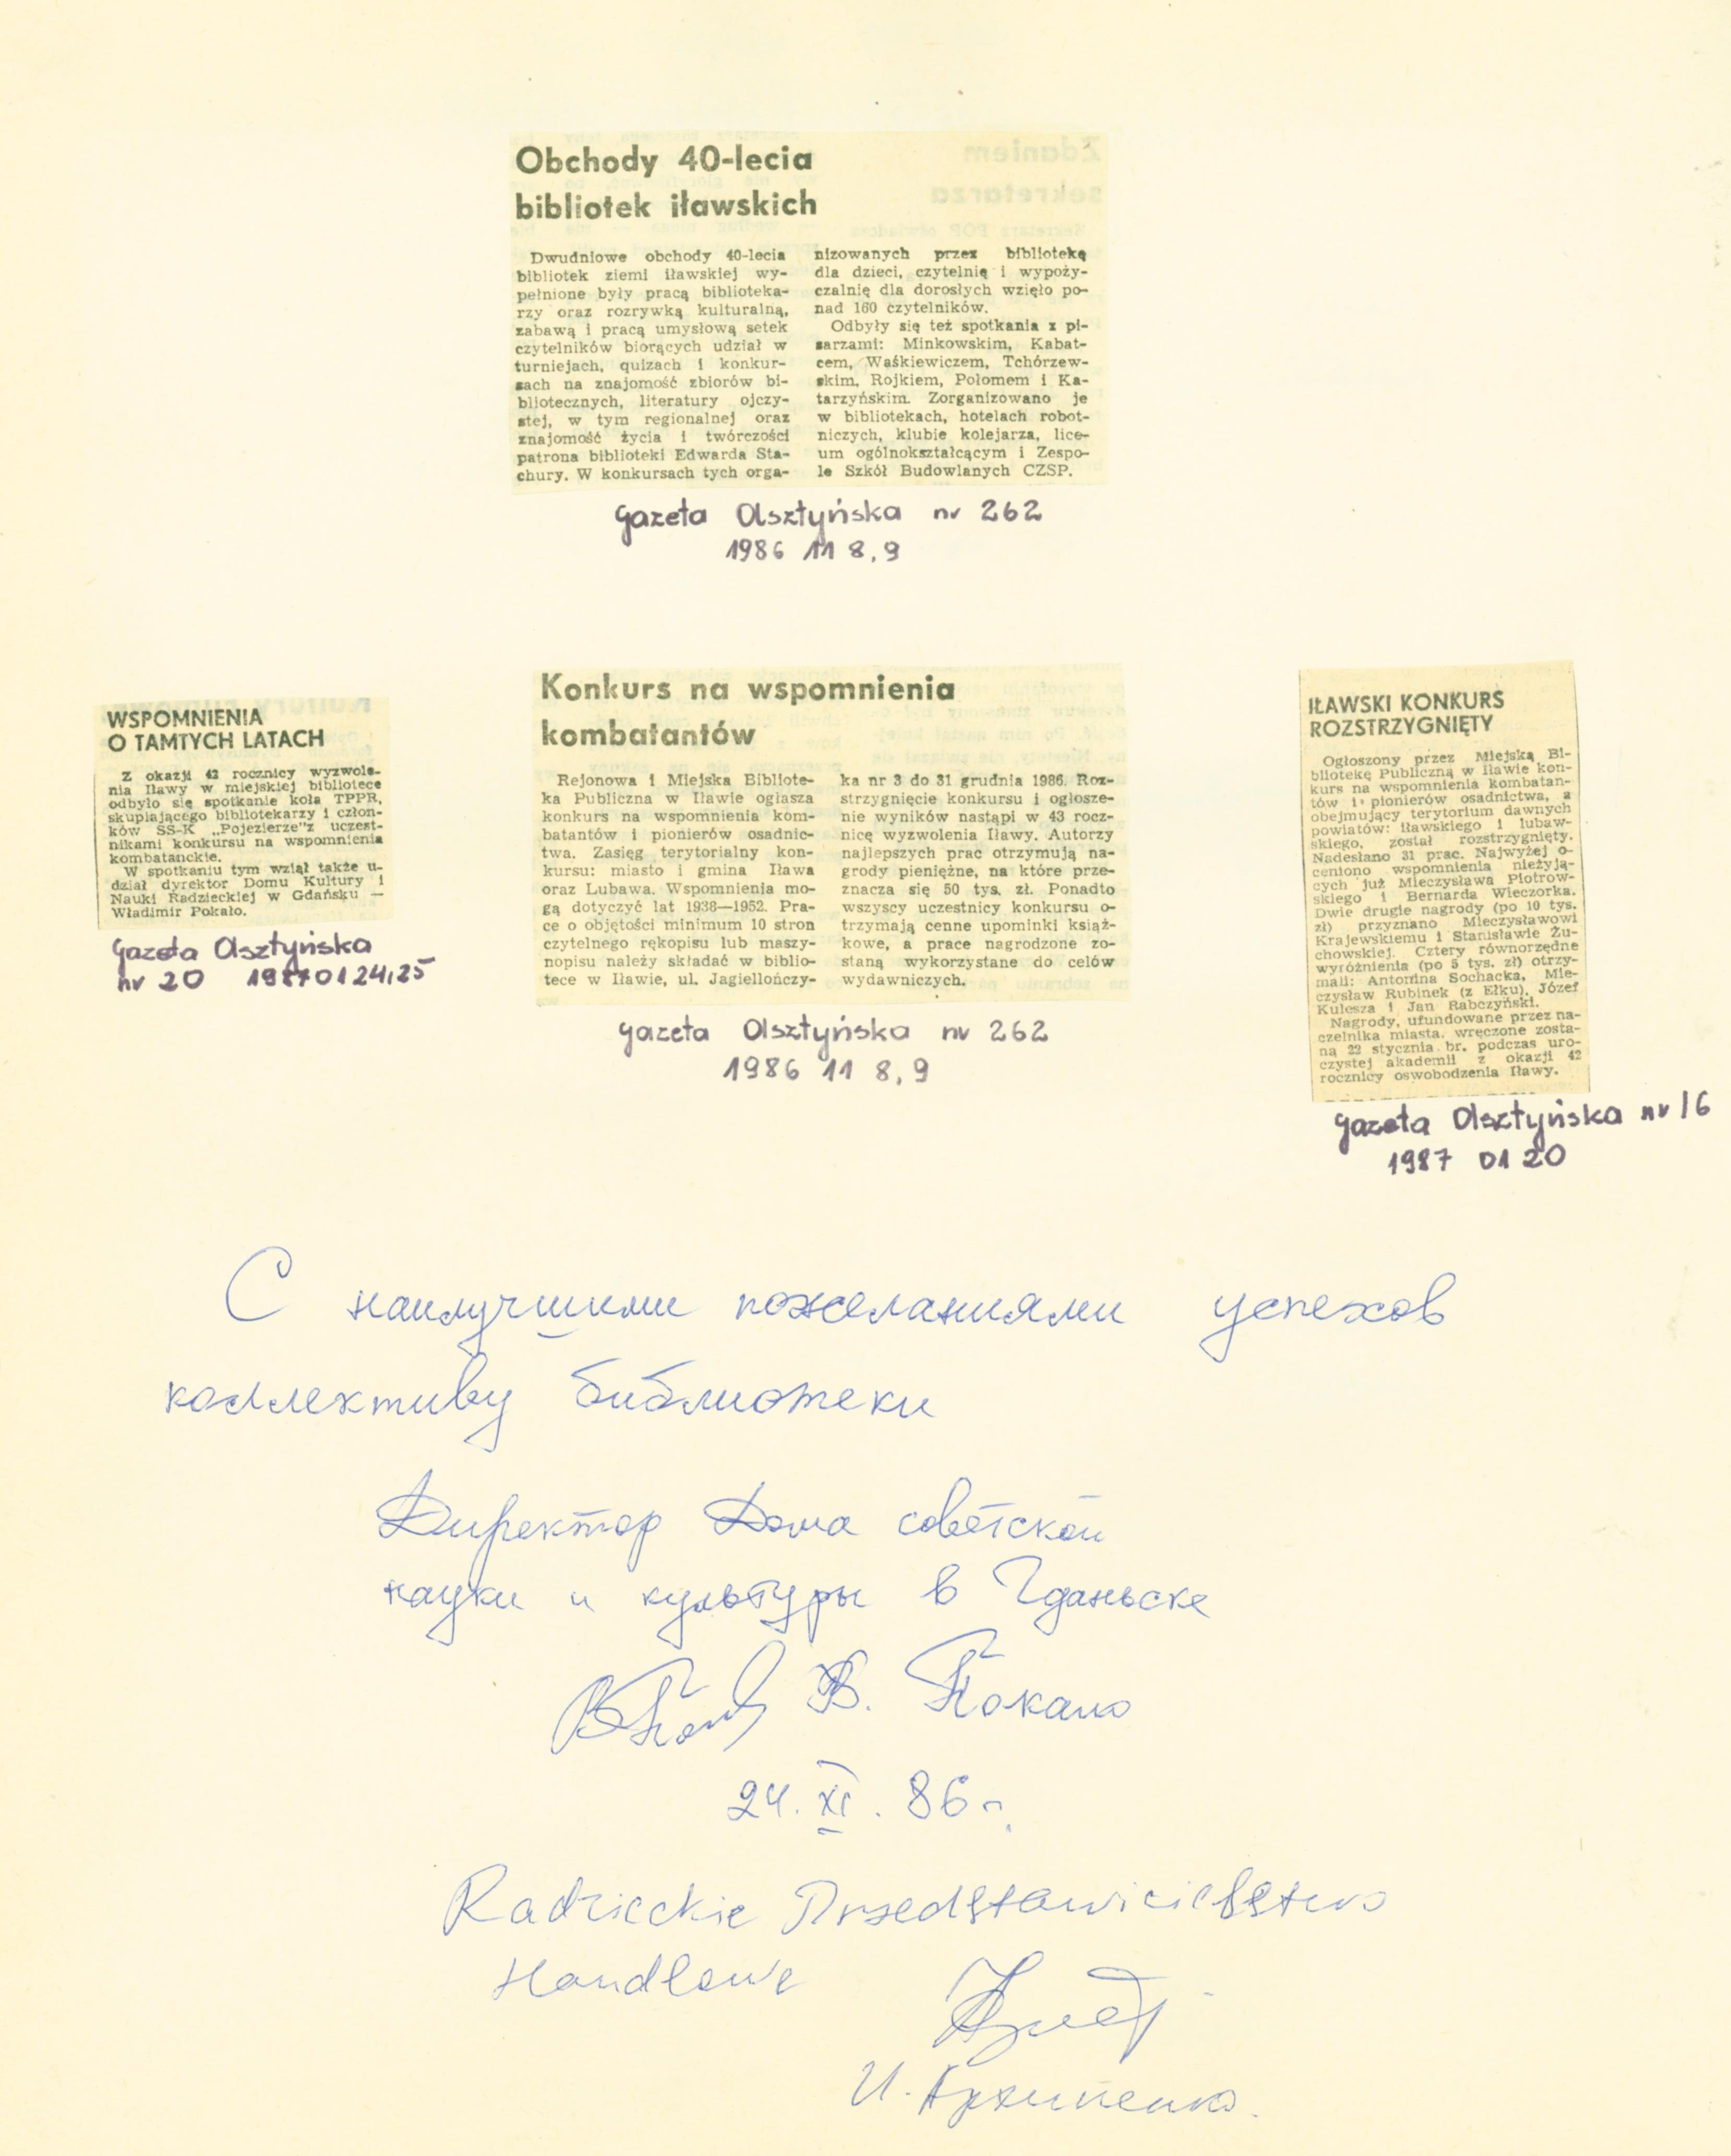 Obchody 40-lecia
bibliotek iławskich
Dwudniowe obchody 40-lecia
bibliotek ziemi iławskiej wy-
pełnione były pracą biblioteka-
rzy oraz rozrywką kulturalną,
zabawą i pracą umysłową setek
czytelników biorących udział w
turniejach, quizach i konkur-
sach na znajomość zbiorów bi-
bliotecznych, literatury ojczy-
stej, w tym regionalnej oraz
znajomość życia i twórczości
patrona biblioteki Edwarda Sta-
chury. W konkursach tych orga-
nizowanych przez bibliotekę
dla dzieci, czytelnię i wypoży-
czalnię dla dorosłych wzięło po-
nad 160 czytelników.
Odbyły się też spotkania z pi-
sarzami: Minkowskim, Kabat-
cem, Waśkiewiczem, Tchórzew-
skim, Rojkiem, Połomem i Ka-
tarzyńskim. Zorganizowano je
w bibliotekach, hotelach robot-
niczych, klubie kolejarza, lice-
um ogólnokształcącym i Zespo-
le Szkół Budowlanych CZSP.
Gazeta Olsztyńska nr 262
1986 11 8,9
WSPOMNIENIA
O TAMTYCH LATACH
Z okazji 42 rocznicy wyzwole-
nia Iławy w miejskiej bibliotece
odbyło się spotkanie koła TPPR,
skupiającego bibliotekarzy i człon-
ków SS-K „Pojezierze"z uczest-
nikami konkursu na wspomnienia
kombatanckie.
W spotkaniu tym wziął także u-
dział dyrektor Domu Kultury i
Nauki Radzieckiej w Gdańsku —
Władimir Pokało.
Gazeta Olsztyńska
nr 20 1987 01 24,25
Konkurs na wspomnienia
kombatantów
Rejonowa i Miejska Bibliote-
ka Publiczna w Iławie ogłasza
konkurs na wspomnienia kom-
batantów i pionierów osadnic-
twa. Zasięg terytorialny kon-
kursu: miasto i gmina Iława
oraz Lubawa. Wspomnienia mo-
gą dotyczyć lat 1938—1952. Pra-
ce o objętości minimum 10 stron
czytelnego rękopisu lub maszy-
nopisu należy składać w biblio-
tece w Iławie, ul. Jagiellończy-
ka nr 3 do 31 grudnia 1986. Roz-
strzygnięcie konkursu i ogłosze-
nie wyników nastąpi w 43 rocz-
nicę wyzwolenia Iławy. Autorzy
najlepszych prac otrzymują na-
grody pieniężne, na które prze-
znacza się 50 tys. zł. Ponadto
wszyscy uczestnicy konkursu o-
trzymają cenne upominki książ-
kowe, a prace nagrodzone zo-
staną wykorzystane do celów
wydawniczych.
Gazeta Olsztyńska nr 262
1986 11 8,9
IŁAWSKI KONKURS
ROZSTRZYGNIĘTY
Ogłoszony przez Miejską Bi-
bliotekę Publiczną w Iławie kon-
kurs na wspomnienia kombatan-
tów i pionierów osadnictwa, a
obejmujący terytorium dawnych
powiatów: iławskiego i lubaw-
skiego, został rozstrzygnięty.
Nadesłano 31 prac. Najwyżej o-
ceniono wspomnienia nieżyją-
cych już Mieczysława Piotrow-
skiego i Bernarda Wieczorka.
Dwie drugie nagrody (po 10 tys.
zł) przyznano Mieczysławowi
Krajewskiemu i Stanisławie Żu-
chowskiej. Cztery równorzędne
wyróżnienia (po 5 tys. zł) otrzy-
mali: Antonina Sochacka, Mie-
czysław Rubinek (z Ełku), Józef
Kulesza i Jan Rabczyński.
Nagrody, ufundowane przez na-
czelnika miasta, wręczone zosta-
ną 22 stycznia br. podczas uro-
czystej akademii z okazji 42
rocznicy oswobodzenia Iławy.
Gazeta Olsztyńska nr 16
1987 01 20
С наилучшими пожеланиями успехов
коллективу библиотеки
Директор Дома советской
науки и культуры в Гданьске
В. Покало
24. XI. 86 г.
Radzieckie Przedstawicielstwo
Handlowe
И. Архипенко.